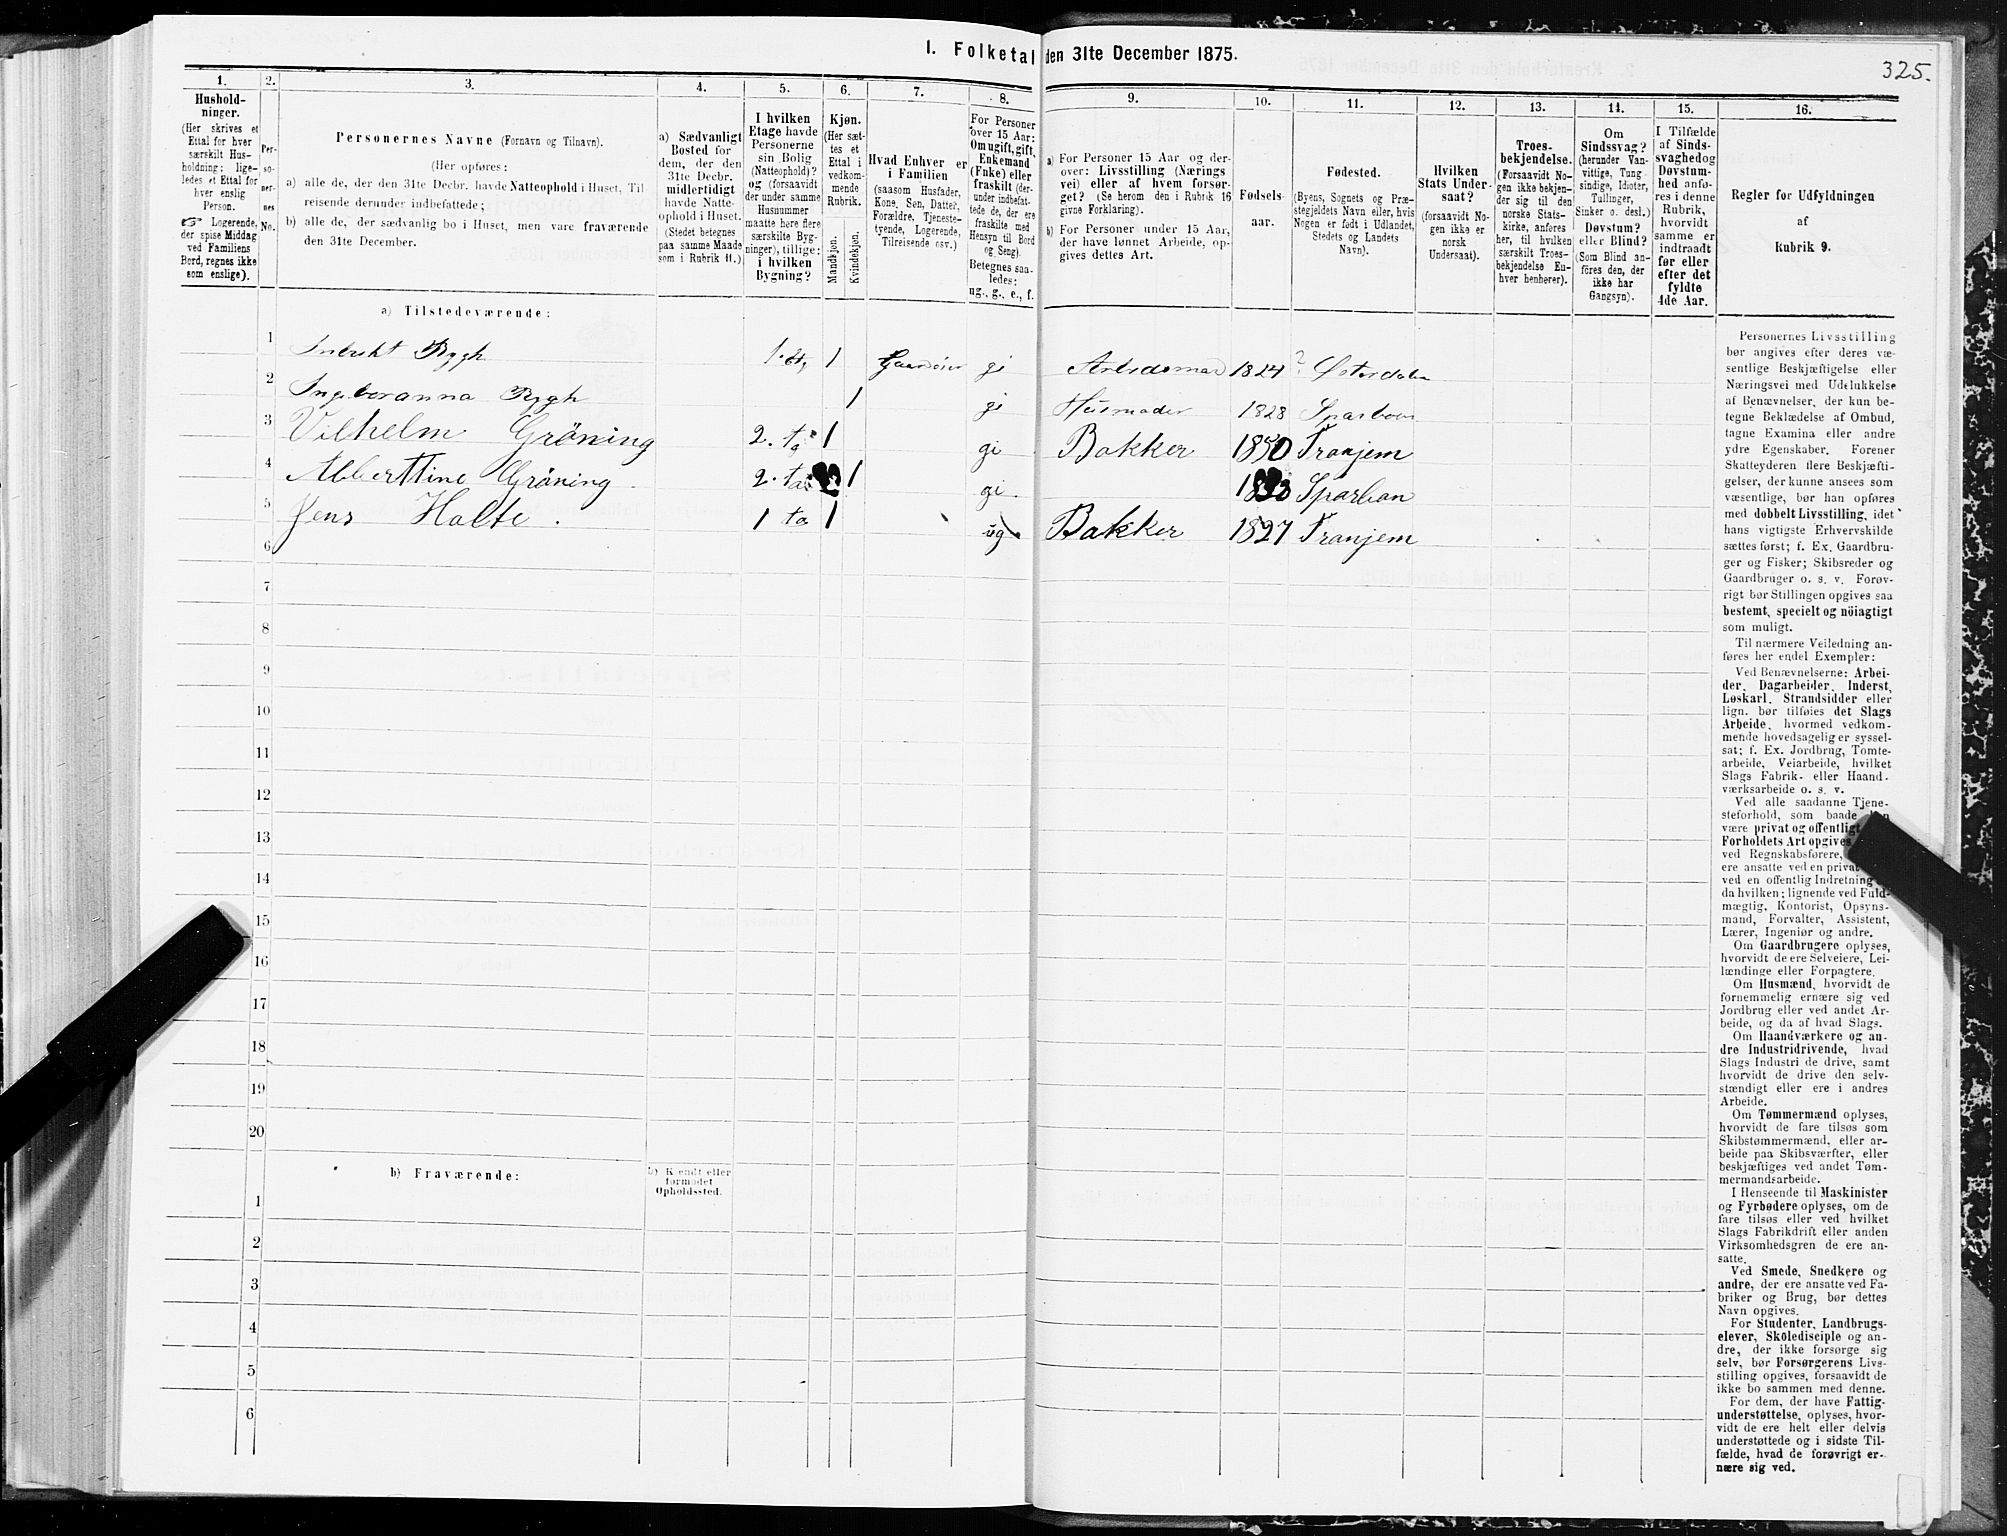 I. Folketal den 31te December 1875.
325.
1.
Hushold-
ninger.
(Her skrives et
Ettal for hver
særskilt Hus-
holdning; lige-
ledes et Ettal for
hver enslig
Person.
☞ Logerende,
der spise Middag
ved Familiens
Bord, regnes ikke
som enslige).
2.
Per-
so-
ner-
nes
No.
3.
Personernes Navne (Fornavn og Tilnavn).
(Her opføres:
a) alle de, der den 31te Decbr. havde Natteophold i Huset, Til-
reisende derunder indbefattede;
b) alle de, der sædvanlig bo i Huset, men vare fraværende
den 31te December.
4.
a) Sædvanligt
Bosted for
dem, der den
31te Decbr.
midlertidigt
havde Natte-
ophold i Huset.
(Stedet betegnes
paa samme Maade
som i Rubrik 11.)
5.
I hvilken
Etage havde
Personerne
sin Bolig
(Natteophold)?
og (forsaavidt
der under samme
Husnummer
maatte høre flere
særskilte Byg-
ninger), tillige:
i hvilken
Bygning?
6.
Kjøn.
(Her sæt-
tes et
Ettal i
vedkom-
mende
Rubrik.
Mandkjøn.
Kvindekjøn.
7.
Hvad Enhver er
i Familien
(saasom Husfader,
Kone, Søn, Datter,
Forældre, Tjeneste-
tyende, Logerende,
Tilreisende osv.)
8.
For Personer
over 15 Aar:
Om ugift, gift,
Enkemand
(Enke) eller
fraskilt (der-
under indbefat-
tede de, der ere
fraskilte med
Hensyn til Bord
og Seng).
Betegnes saa-
ledes:
ug., g., e., f.
9.
a) For Personer 15 Aar og der-
over: Livsstilling (Nærings
vei) eller af hvem forsør-
get? (Se herom den i Rubrik 16
givne Forklaring).
b) For Personer under 15 Aar,
der have lønnet Arbeide, op-
gives dettes Art.
10.
Fødsels-
aar.
11.
Fødested.
(Byens, Sognets og Præ-
stegjeldets Navn eller, hvis
Nogen er født i Udlandet,
Stedets og Landets
Navn).
12.
Hvilken
Stats Under-
saat?
(forsaavidt No-
gen ikke er
norsk
Undersaat).
13.
Troes-
bekjendelse.
(Forsaavidt No-
gen ikke bekjen-
der sig til den
norske Stats-
kirke, anføres
her, til hvilken
særskilt Troes-
bekjendelse En-
hver henhører).
14.
Om
Sindssvag?
(herunder Van-
vittige, Tung-
sindige, Idioter,
Tullinger,
Sinker o. desl.)
Døvstum?
eller Blind?
(Som Blind an-
føres den, der
ikke har
Gangsyn).
15.
I Tilfælde
af Sinds-
svaghed og
Døvstum-
hed anfø-
res i denne
Rubrik,
hvorvidt
samme er
indtraadt
før eller
efter det
fyldte
4de Aar.
16.
Regler for Udfyldningen
af
Rubrik 9.
a) Tilstedeværende:
1 Rygh 1. et, 1 gi Arbeidsmand 1824 ? Østerdalen
2 Ingeboranna Rygh 1 gi Husmoder 1828
3 Vilhelm Gröning 2. ta 1 gi Bakker 1850 Tranjem
4 Alberttine Gröning 2. ta 1 gi Sparban
5 Jens Holte. 1 ta 1 ug Bakker 1827 Tranjem
6
7
8
9
10
11
12
13
14
15
16
17
18
19
20
b) Fraværende:
b) Kjendt eller
formodet
Opholdssted.
1
2
3
4
5
6
Personernes Livsstilling
bør angives efter deres væ-
sentlige Beskjæftigelse eller
Næringsvei med Udelukkelse
af Benævnelser, der kun be-
tegne Beklædelse af Ombud,
tagne Examina eller andre
ydre Egenskaber. Forener
Skatteyderen flere Beskjæfti-
gelser, der kunne ansees som
væsentlige, bør han opføres
med dobbelt Livsstilling, idet
hans vigtigste Erhvervskilde
sættes først; f. Ex. Gaardbru-
ger og Fisker; Skibsreder og
Gaardbruger o. s. v. Forøv-
rigt bør Stillingen opgives saa
bestemt, specielt og nöiagtigt
som muligt.
Til nærmere Veiledning an-
føres her endel Exempler:
Ved Benævnelserne: Arbei-
der, Dagarbeider, Inderst,
Løskarl, Strandsidder eller
lign. bør tilføies det Slags
Arbeide, hvormed vedkom-
mende hovedsagelig er syssel-
sat; f. Ex. Jordbrug, Tomte-
arbeide, Veiarbeide, hvilket
Slags Fabrik- eller Haand-
værksarbeide o. s. v.
Ved alle saadanne Tjene-
steforhold, som baade
være privat og offentligt
Forholdets Art opgives
ved Regnskabsførere,
ere ansatte ved en privat
ved en offentlig Indretning
da hvilken; lignende ved Fuld-
mægtig, Kontorist, Opsyns-
mand, Forvalter, Assistent,
Lærer, Ingeniør og andre.
Om Gaardbrugere oplyses,
hvorvidt de ere Selveiere, Lei-
lændinge eller Forpagtere.
Om Husmænd, hvorvidt de
fornemmelig ernære sig ved
Jordbrug eller ved andet Ar-
beide, og da af hvad Slags.
Om Haandværkere og an-
dre Industridrivende, hvad
Slags Industri de drive, samt
hvorvidt de drive den selv-
stændigt eller ere i andres
Arbeide.
Om Tømmermænd oplyses,
hvorvidt de fare tilsøs som
Skibstømmermænd, eller ar-
beide paa Skibsværfter, eller
beskjæftiges ved andet Tøm-
mermandsarbeide.
I Henseende til Maskinister
og Fyrbødere oplyses, om de
fare tilsøs eller ved hvilket
Slags Fabrikdrift eller anden
Virksomhedsgren de ere an-
satte.
Ved Smede, Snedkere og
andre, der ere ansatte ved Fa-
briker og Brug, bør dettes
Navn opgives.
For Studenter, Landbrugs-
elever, Skoledisciple og an-
dre, der ikke forsørge sig
selv, bør Forsørgerens Livs-
stilling opgives, forsaavidt de
ikke bo sammen med denne.
For dem, der have Fattig-
understøttelse, oplyses, hvor-
vidt de ere helt eller delvis
understøttede og i sidste Til-
fælde, hvad de forøvrigt er-
nære sig ved.